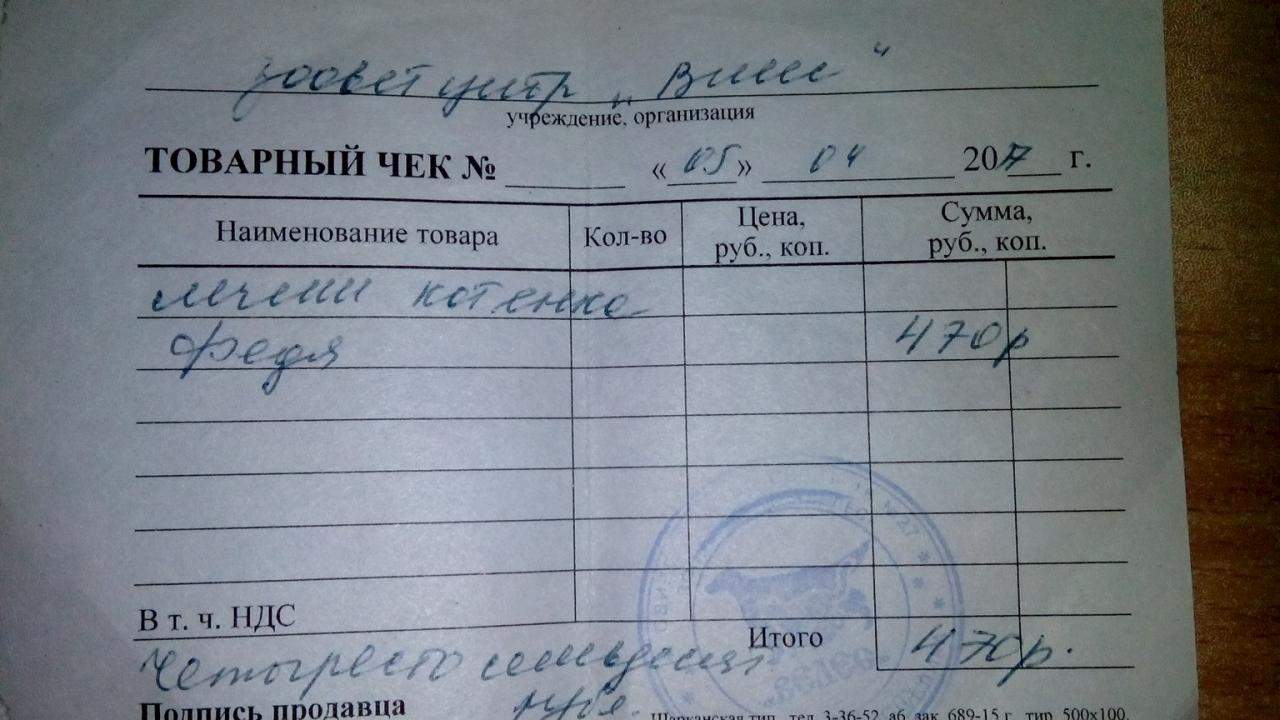 зооветцентр „Вита“
учреждение, организация
ТОВАРНЫЙ ЧЕК № «05» 04 2017 г.
Наименование товара Кол-во Цена, руб., коп. Сумма, руб., коп.
лечении котенка
Федя 470р
В т. ч. НДС Итого 470р.
Четыреста семьдесят
Подпись продавца руб.
Шарканская тип. тел. 3-36-52 аб. зак. 689-15 г. тир. 500х100.